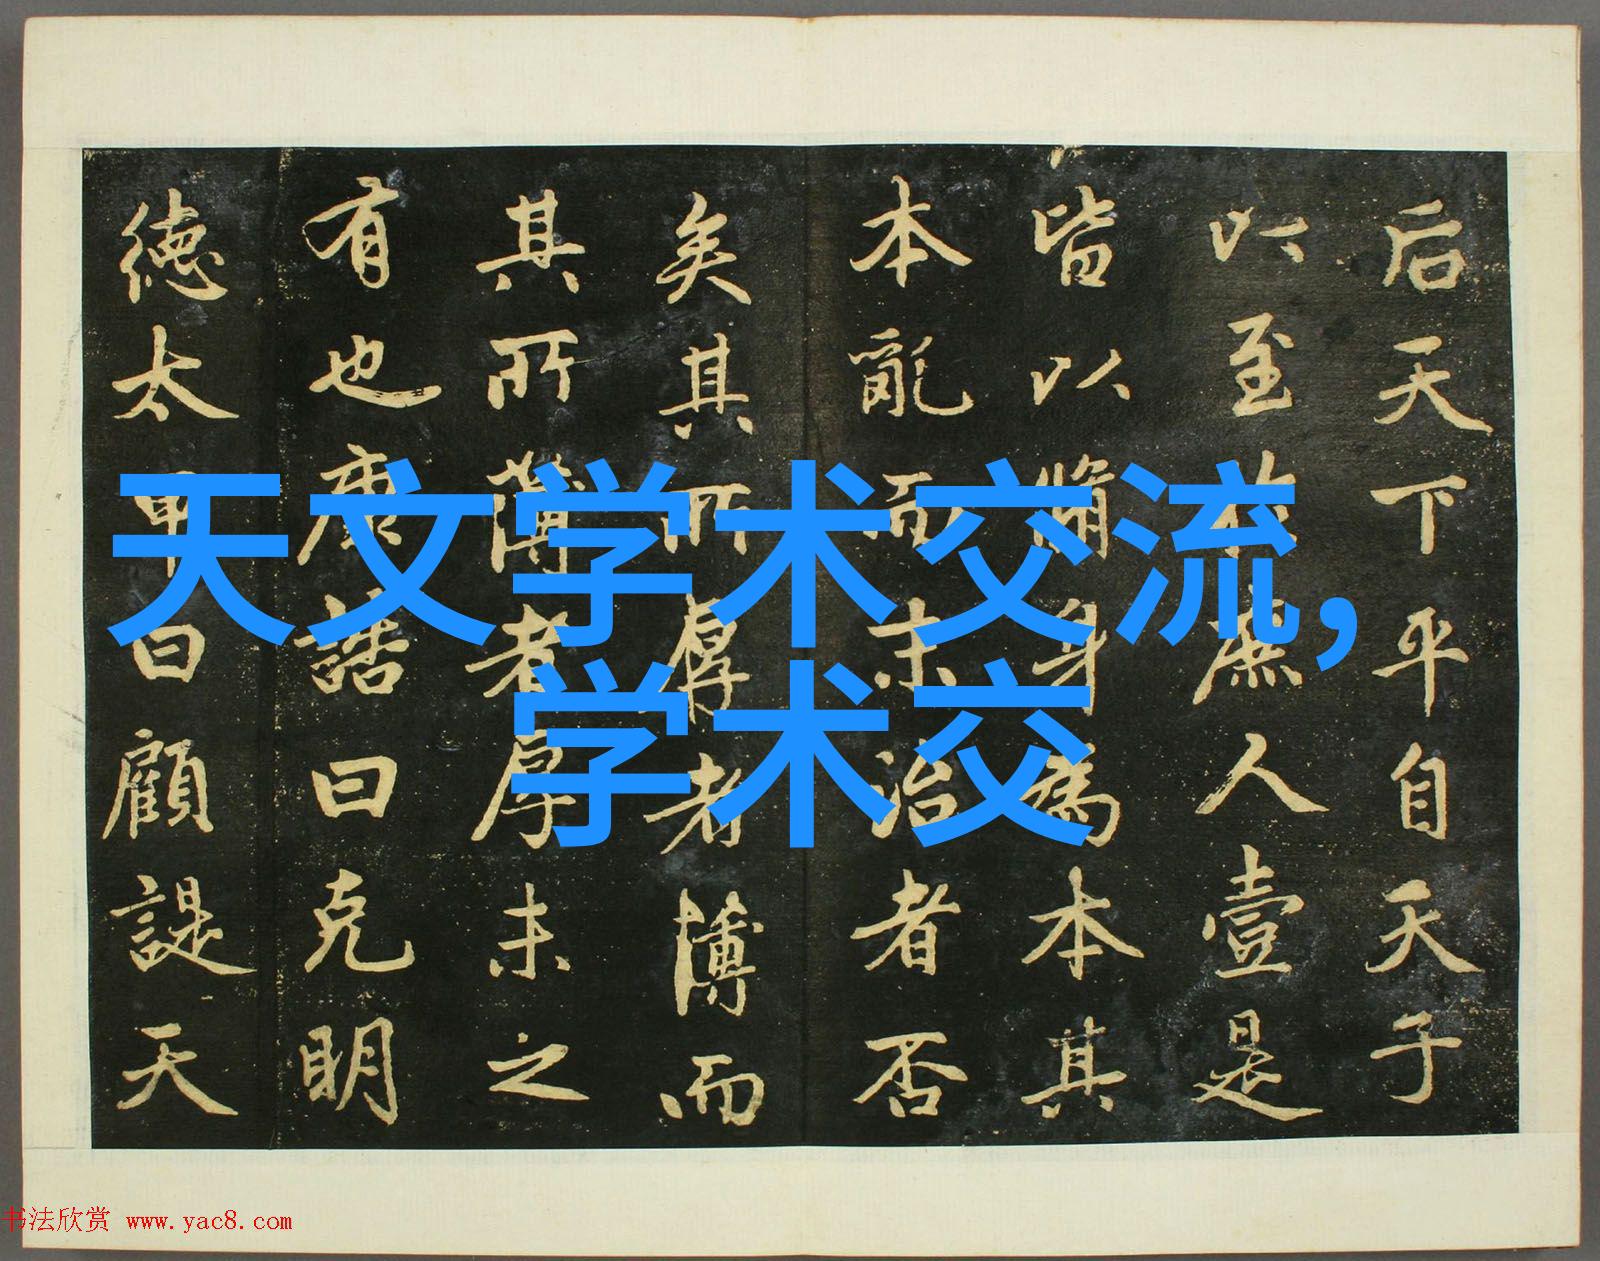 后天下平自天子
以至於庶人壹是
皆以脩身為本其
本亂而末治者否
矣其所厚者薄而
其所薄者厚未之
有也康誥曰克明
德太甲曰顧諟天
天文学术交流,
学术交
书法欣赏 www.yac8.com